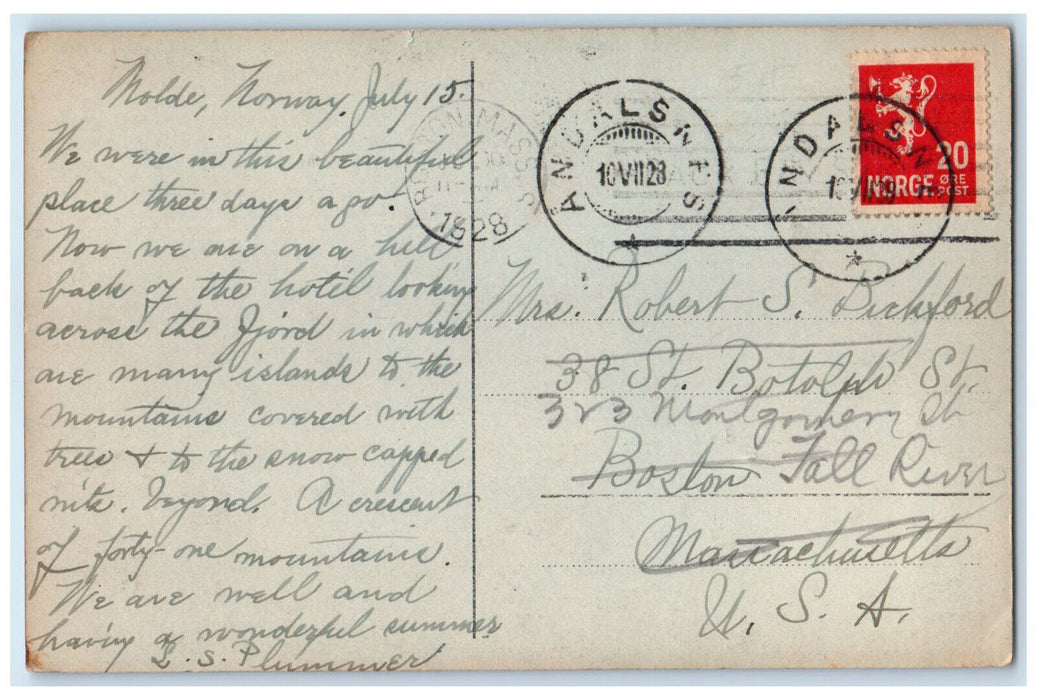 Molde, Norway, July 15.
We were in this beautiful
place three days ago.
Now we are on a hill
back of the hotel looking
across the Fjord in which
are many islands to the
mountains covered with
trees + to the snow capped
mts. beyond. A crescent
of forty-one mountains.
We are well and
having a wonderful summer
L. S. Plummer
BOSTON MASS
1928
ÅNDALSNES
16 VII 28
ÅNDALSNES
20
NORGE ØRE
POST
Mrs. Robert S. Pickford
38 St. Botolph St.
323 Montgomery St
Boston Fall River
Massachusetts
U. S. A.